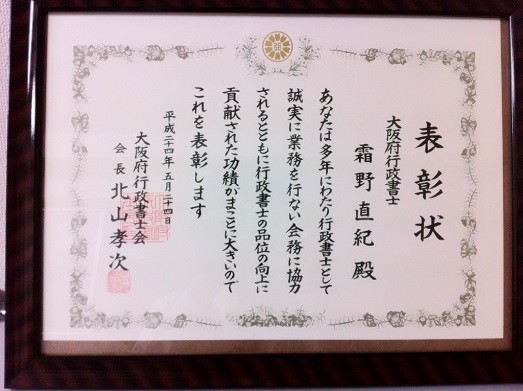 表彰状
大阪府行政書士
霜野直紀殿
あなたは多年にわたり行政書士として
誠実に業務を行ない会務に協力
されるとともに行政書士の品位の向上に
貢献された功績がまことに大きいので
これを表彰します
平成二十四年五月二十四日
大阪府行政書士会
会長 北山孝次